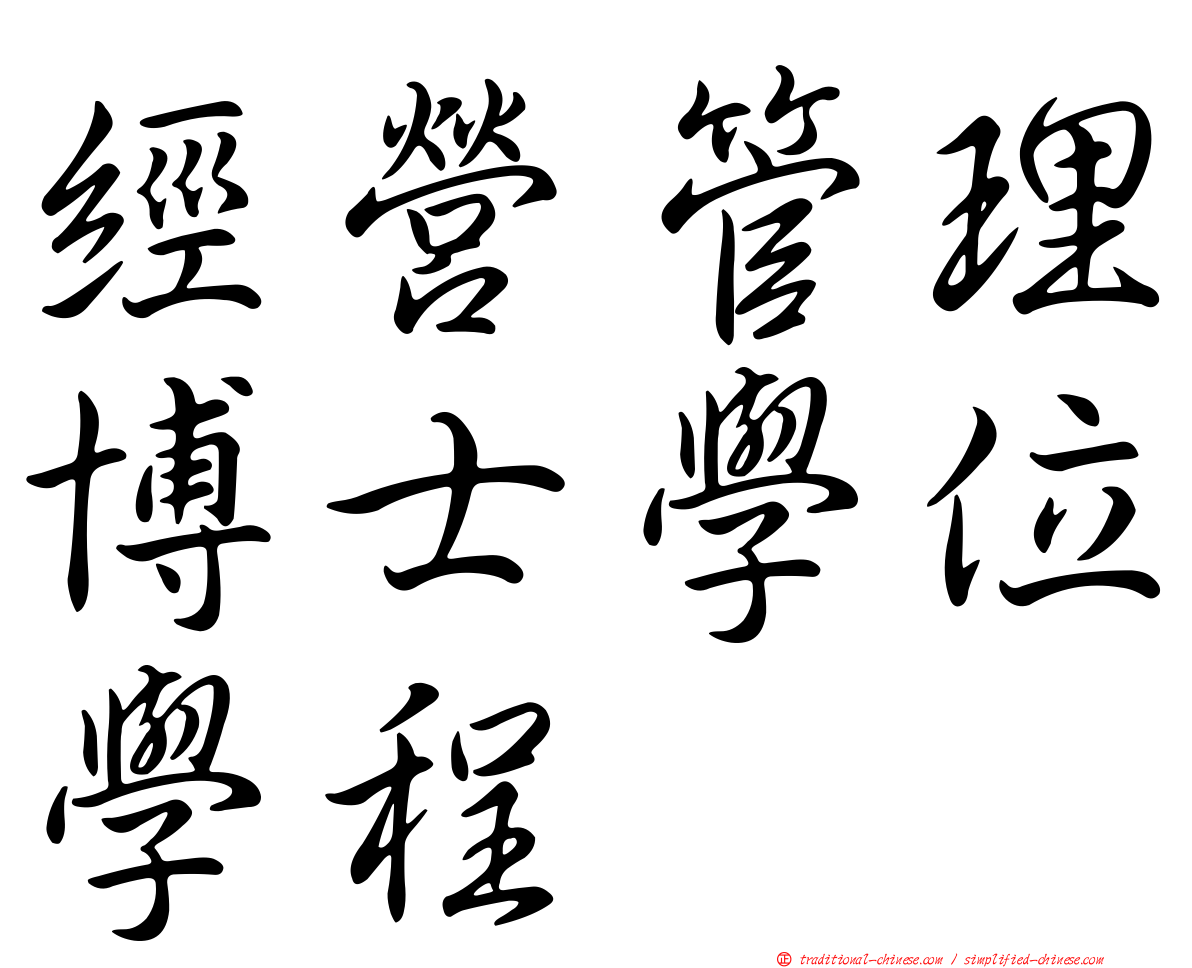 經營管理
博士學位
學程
㊣ traditional-chinese.com / simplified-chinese.com